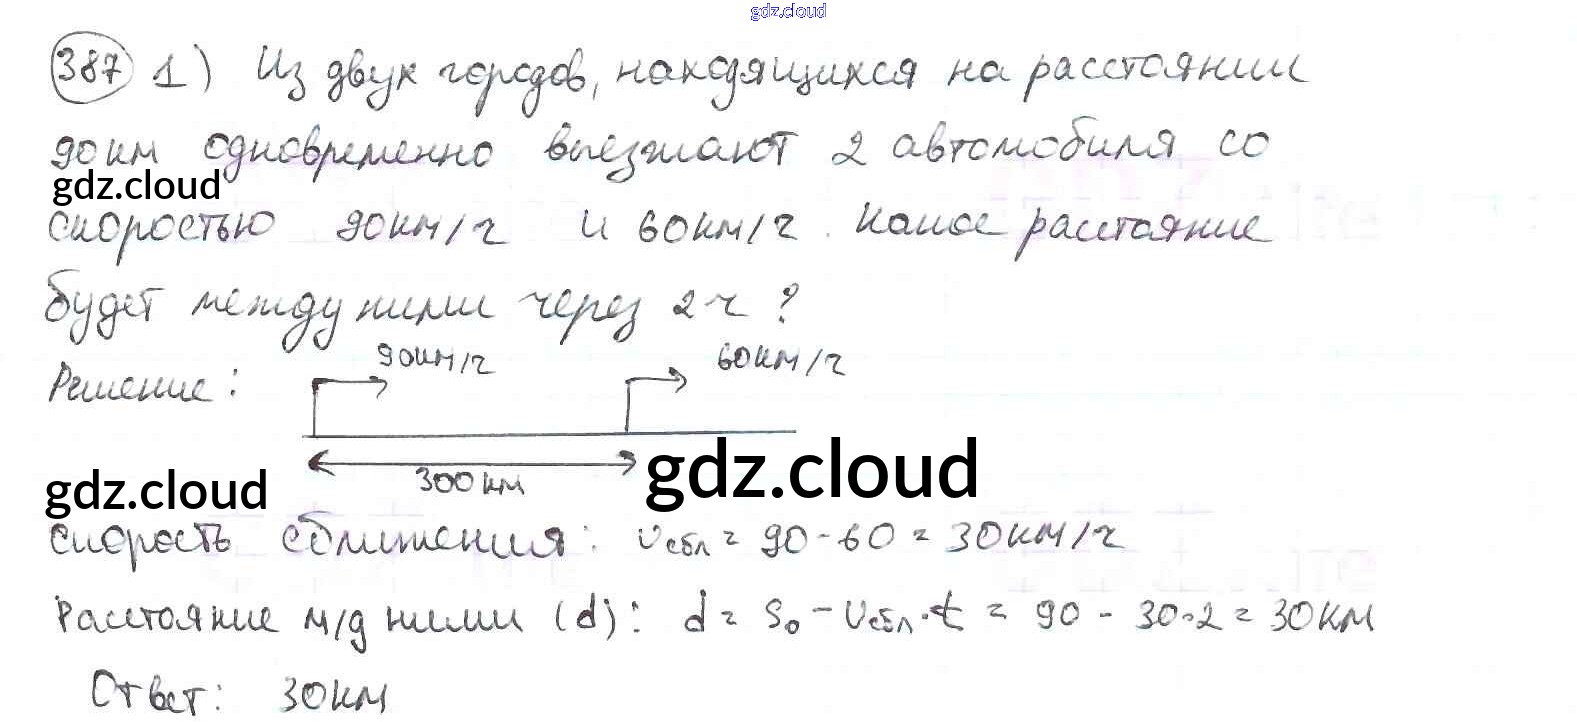 gdz.cloud
387 1) Из двух городов, находящихся на расстоянии
90км одновременно выезжают 2 автомобиля со
gdz.cloud
скоростью 90км/ч и 60км/ч. Какое расстояние
будет между ними через 2ч?
90км/ч 60км/ч
Решение:
300км
gdz.cloud gdz.cloud
Скорость сближения: υсбл = 90-60=30км/ч
Расстояние м/д ними (d): d = S₀ - υсбл·t = 90 - 30·2 = 30км
Ответ: 30км